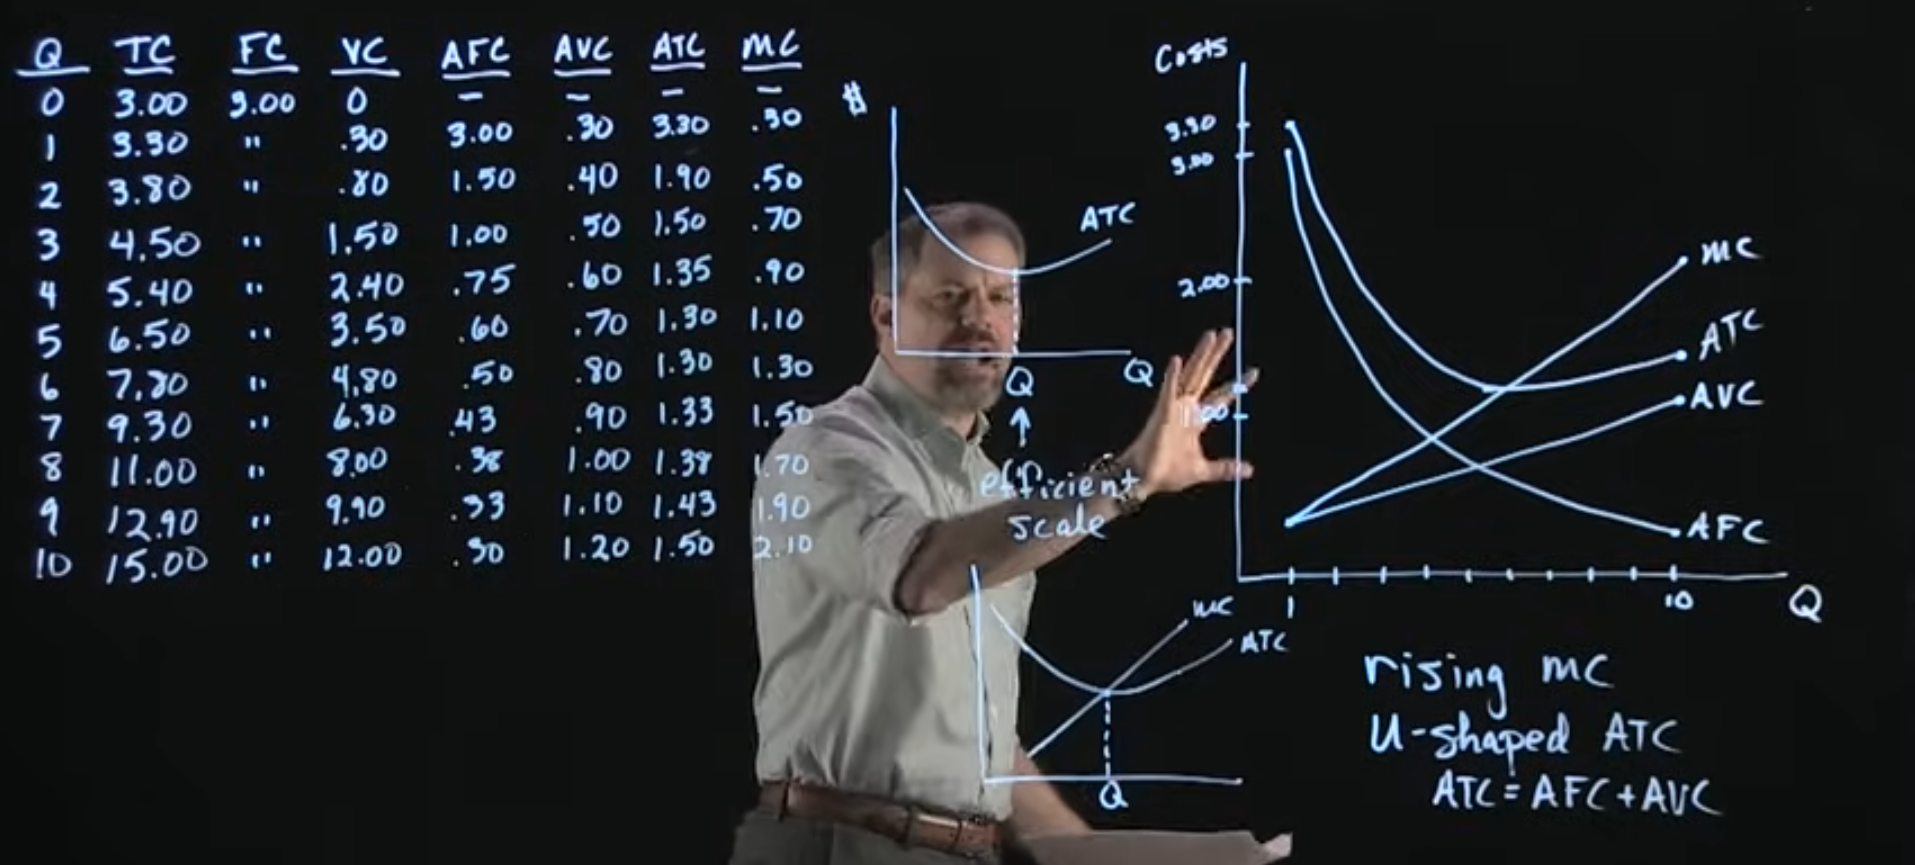 Q TC FC VC AFC AVC ATC MC
0 3.00 3.00 0 – – – –
1 3.30 " .30 3.00 .30 3.30 .30
2 3.80 " .80 1.50 .40 1.90 .50
3 4.50 " 1.50 1.00 .50 1.50 .70
4 5.40 " 2.40 .75 .60 1.35 .90
5 6.50 " 3.50 .60 .70 1.30 1.10
6 7.80 " 4.80 .50 .80 1.30 1.30
7 9.30 " 6.30 .43 .90 1.33 1.50
8 11.00 " 8.00 .38 1.00 1.38 1.70
9 12.90 " 9.90 .33 1.10 1.43 1.90
10 15.00 " 12.00 .30 1.20 1.50 2.10
$
ATC
Q Q
↑
efficient
scale
MC
ATC
Q
Costs
3.30
3.00
2.00
1.00
MC
ATC
AVC
AFC
1 10 Q
rising MC
U-shaped ATC
ATC = AFC + AVC